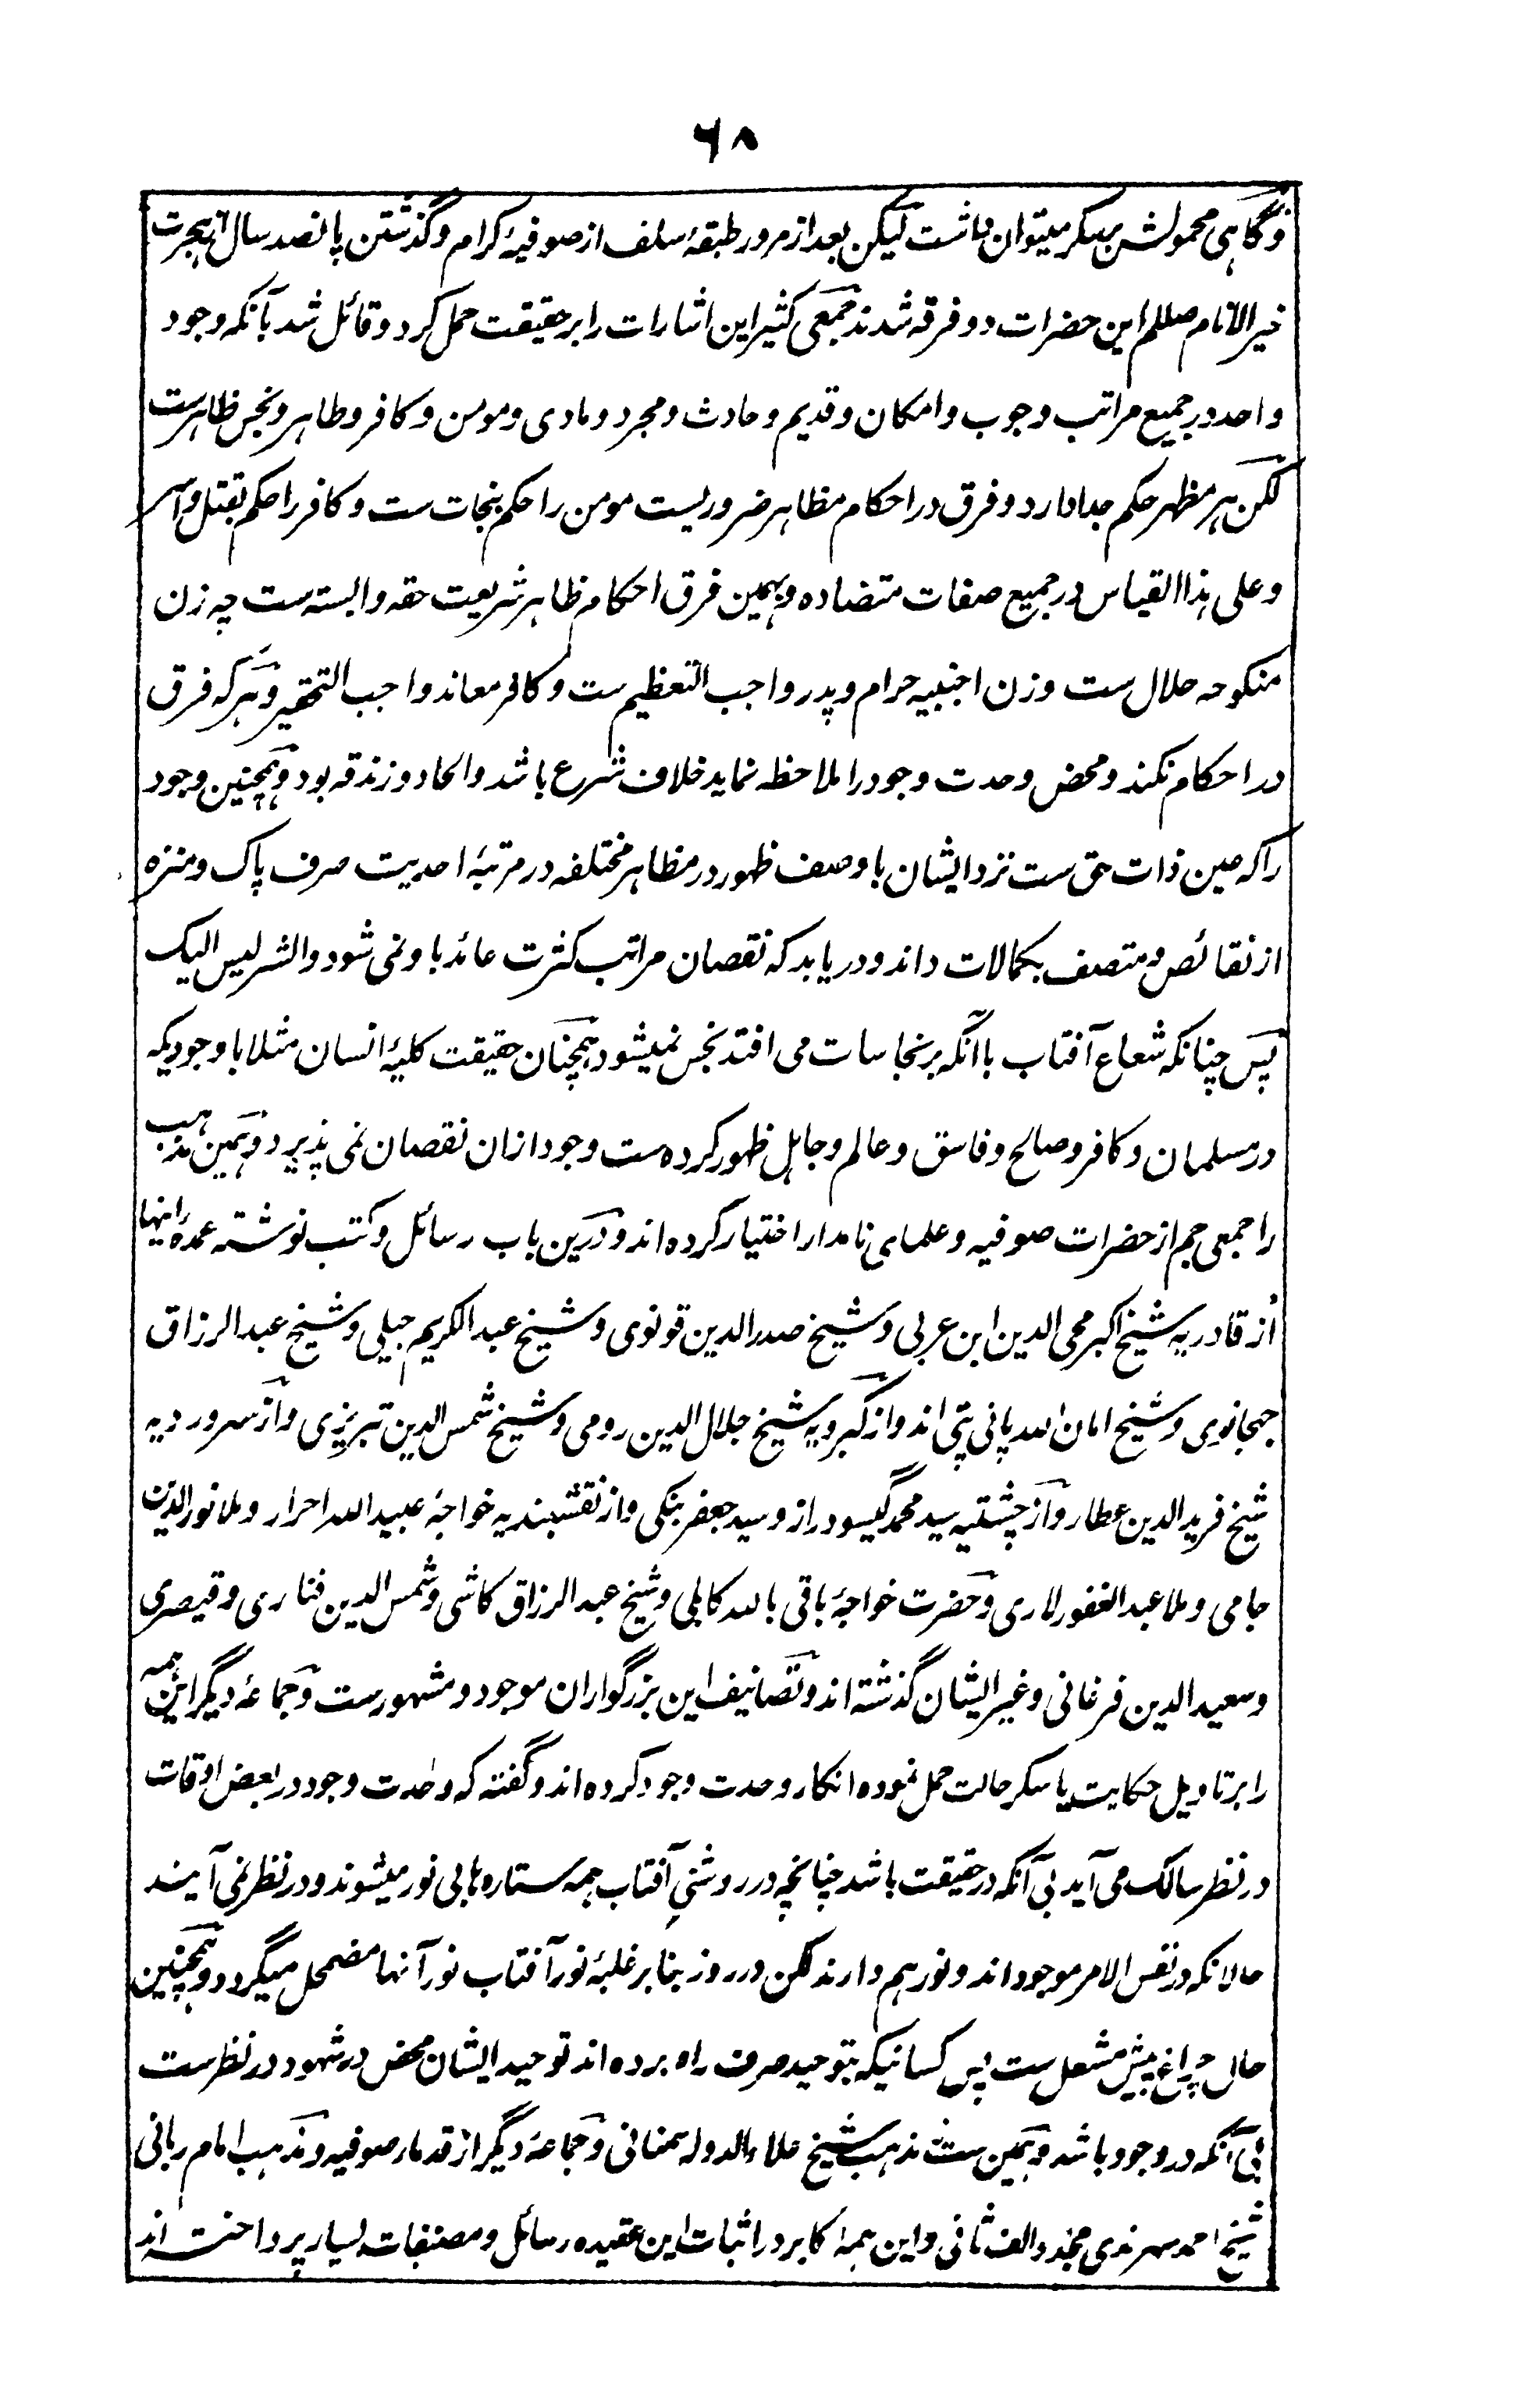 ۶۸
وگاهی محمولش بسکر میتوان داشت لیکن بعد از مرور طبقهٔ سلف از صوفیهٔ کرام و گذشتن پانصد سال از هجرت
خیر الانام صللم این حضرات دو فرقه شدند جمعی کثیر این اشارات را بر حقیقت حمل کرد و قائل شد بآنکه وجود
واحد در جمیع مراتب وجوب و امکان و قدیم و حادث و مجرد و مادی و مومن و کافر و طاهر و نجس ظاهرست
لکن هر مظهر حکم جدا دارد و فرق در احکام مظاهر ضروریست مومن را حکم بنجات ست و کافر را حکم بقتل و اسر
و علی هذا القیاس در جمیع صفات متضاده و بهمین فرق احکام ظاهر شریعت حقه وابسته ست چه زن
منکوحه حلال ست و زن اجنبیه حرام و پدر واجب التعظیم ست و کافر معاند واجب التحقیر و هر که فرق
در احکام نکند و محض وحدت وجود را ملاحظه نماید خلاف شرع باشد و الحاد و زندقه بود و همچنین وجود
را که عین ذات حق ست نزد ایشان با وصف ظهور در مظاهر مختلفه در مرتبهٔ احدیت صرف پاک و منزه
از نقائص و متصف بکمالات داند و دریابد که نقصان مراتب کثرت عائد باو نمی شود والشر لیس الیک
پس چنانکه شعاع آفتاب باآنکه بر نجاسات می افتد نجس نمیشود همچنان حقیقت کلیهٔ انسان مثلا با وجودیکه
در مسلمان و کافر و صالح و فاسق و عالم و جاهل ظهور کرده ست وجود ازان نقصان نمی پذیرد و همین مذهب
را جمعی جم از حضرات صوفیه و علمای نامدار اختیار کرده اند و درین باب رسائل و کتب نوشته عمدهٔ اینها
از قادریه شیخ اکبر محی الدین ابن عربی و شیخ صدر الدین قونوی و شیخ عبد الکریم جیلی و شیخ عبد الرزاق
جهجانوی و شیخ امان الله پانی پتی اند و از کبرویه شیخ جلال الدین رومی و شیخ شمس الدین تبریزی و از سهروردیه
شیخ فرید الدین عطار و از چشتیه سید محمد گیسو دراز و سید جعفر مکی و از نقشبندیه خواجهٔ عبید الله احرار و ملا نور الدین
جامی و ملا عبد الغفور لاری و حضرت خواجهٔ باقی بالله کابلی و شیخ عبد الرزاق کاشی و شمس الدین فناری و قیصری
و سعید الدین فرغانی و غیر ایشان گذشته اند و تصانیف این بزرگواران موجود و مشهورست و جماعهٔ دیگر این همه
را بر تاویل حکایت یا سکر حالت حمل نموده انکار وحدت وجود کرده اند و گفته که وحدت وجود در بعض اوقات
در نظر سالک می آید بی آنکه در حقیقت باشد چنانچه در روشنی آفتاب همه ستاره ها بی نور میشوند و در نظر نمی آیند
حالانکه در نفس الامر موجود اند و نور هم دارند لکن در روز بنا بر غلبهٔ نور آفتاب نور آنها مضمحل میگردد و همچنین
حال چراغ پیش مشعل ست پس کسانیکه بتوحید صرف راه برده اند توحید ایشان محض در شهود در نظرست
بی آنکه در وجود باشد و همین ست مذهب شیخ علاء الدوله سمنانی و جماعهٔ دیگر از قدماء صوفیه و مذهب امام ربانی
شیخ احمد سهرندی مجدد الف ثانی و این همه اکابر در اثبات این عقیده رسائل و مصنفات بسیار پرداخته اند